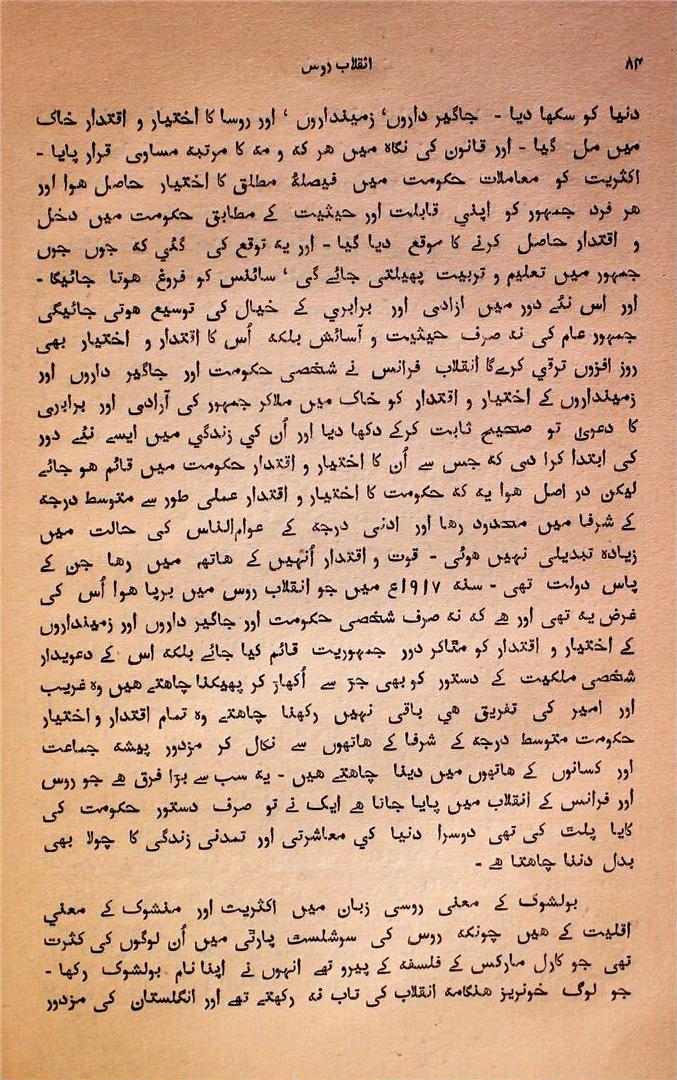 ۸۴ انقلاب روس
دنیا کو سکھا دیا - جاگیر داروں، زمینداروں، اور روسا کا اختیار و اقتدار خاک
میں مل گیا - اور قانون کی نگاہ میں ھر کہ و مہ کا مرتبہ مساوی قرار پایا -
اکثریت کو معاملات حکومت میں فیصلۂ مطلق کا اختیار حاصل ھوا اور
ھر فرد جمہور کو اپنی قابلت اور حیثیت کے مطابق حکومت میں دخل
و اقتدار حاصل کرنے کا موقع دیا گیا - اور یہ توقع کی گئی کہ جوں جوں
جمہور میں تعلیم و تربیت پھیلتی جائے گی، سائنس کو فروغ ھوتا جائیگا -
اور اس نئے دور میں ازادی اور برابری کے خیال کی توسیع ھوتی جائیگی
جمہور عام کی نہ صرف حیثیت و آسائش بلکہ اُس کا اقتدار و اختیار بھی
روز افزوں ترقی کرے گا انقلاب فرانس نے شخصی حکومت اور جاگیر داروں اور
زمینداروں کے اختیار و اقتدار کو خاک میں ملاکر جمہور کی آرادی اور برابری
کا دعویٰ تو صحیح ثابت کرکے دکھا دیا اور اُن کی زندگی میں ایسے نئے دور
کی ابتدا کرا دی کہ جس سے اُن کا اختیار و اقتدار حکومت میں قائم ھو جائے
لیکن در اصل ھوا یہ کہ حکومت کا اختیار و اقتدار عملی طور سے متوسط درجہ
کے شرفا میں محدود رھا اور ادنی درجہ کے عوام‌الناس کی حالت میں
زیادہ تبدیلی نہیں ھوئی - قوت و اقتدار اُنہیں کے ھاتھ میں رھا جن کے
پاس دولت تھی - سنہ ۱۹۱۷ع میں جو انقلاب روس میں برپا ھوا اُس کی
غرض یہ تھی اور ھے کہ نہ صرف شخصی حکومت اور جاگیر داروں اور زمینداروں
کے اختیار و اقتدار کو مٹاکر دور جمہوریت قائم کیا جائے بلکہ اس کے دعویدار
شخصی ملکیت کے دستور کو بھی جڑ سے اُکھاڑ کر پھیکنا چاھتے ھیں وہ غریب
اور امیر کی تفریق ھی باقی نہیں رکھنا چاھتے وہ تمام اقتدار و اختیار
حکومت متوسط درجہ کے شرفا کے ھاتھوں سے نکال کر مزدور پیشہ جماعت
اور کسانوں کے ھاتھوں میں دینا چاھتے ھیں - یہ سب سے بڑا فرق ھے جو روس
اور فرانس کے انقلاب میں پایا جاتا ھے ایک نے تو صرف دستور حکومت کی
کایا پلٹ کی تھی دوسرا دنیا کی معاشرتی اور تمدنی زندگی کا چولا بھی
بدل دننا چاھتا ھے -
بولشوک کے معنی روسی زبان میں اکثریت اور منشوک کے معنی
اقلیت کے ھیں چونکہ روس کی سوشلسٹ پارٹی میں اُن لوگوں کی کثرت
تھی جو کارل مارکس کے فلسفہ کے پیرو تھے انہوں نے اپنا نام بولشوک رکھا -
جو لوگ خونریز ھنگامہ انقلاب کی تاب نہ رکھتے تھے اور انگلستان کی مزدور